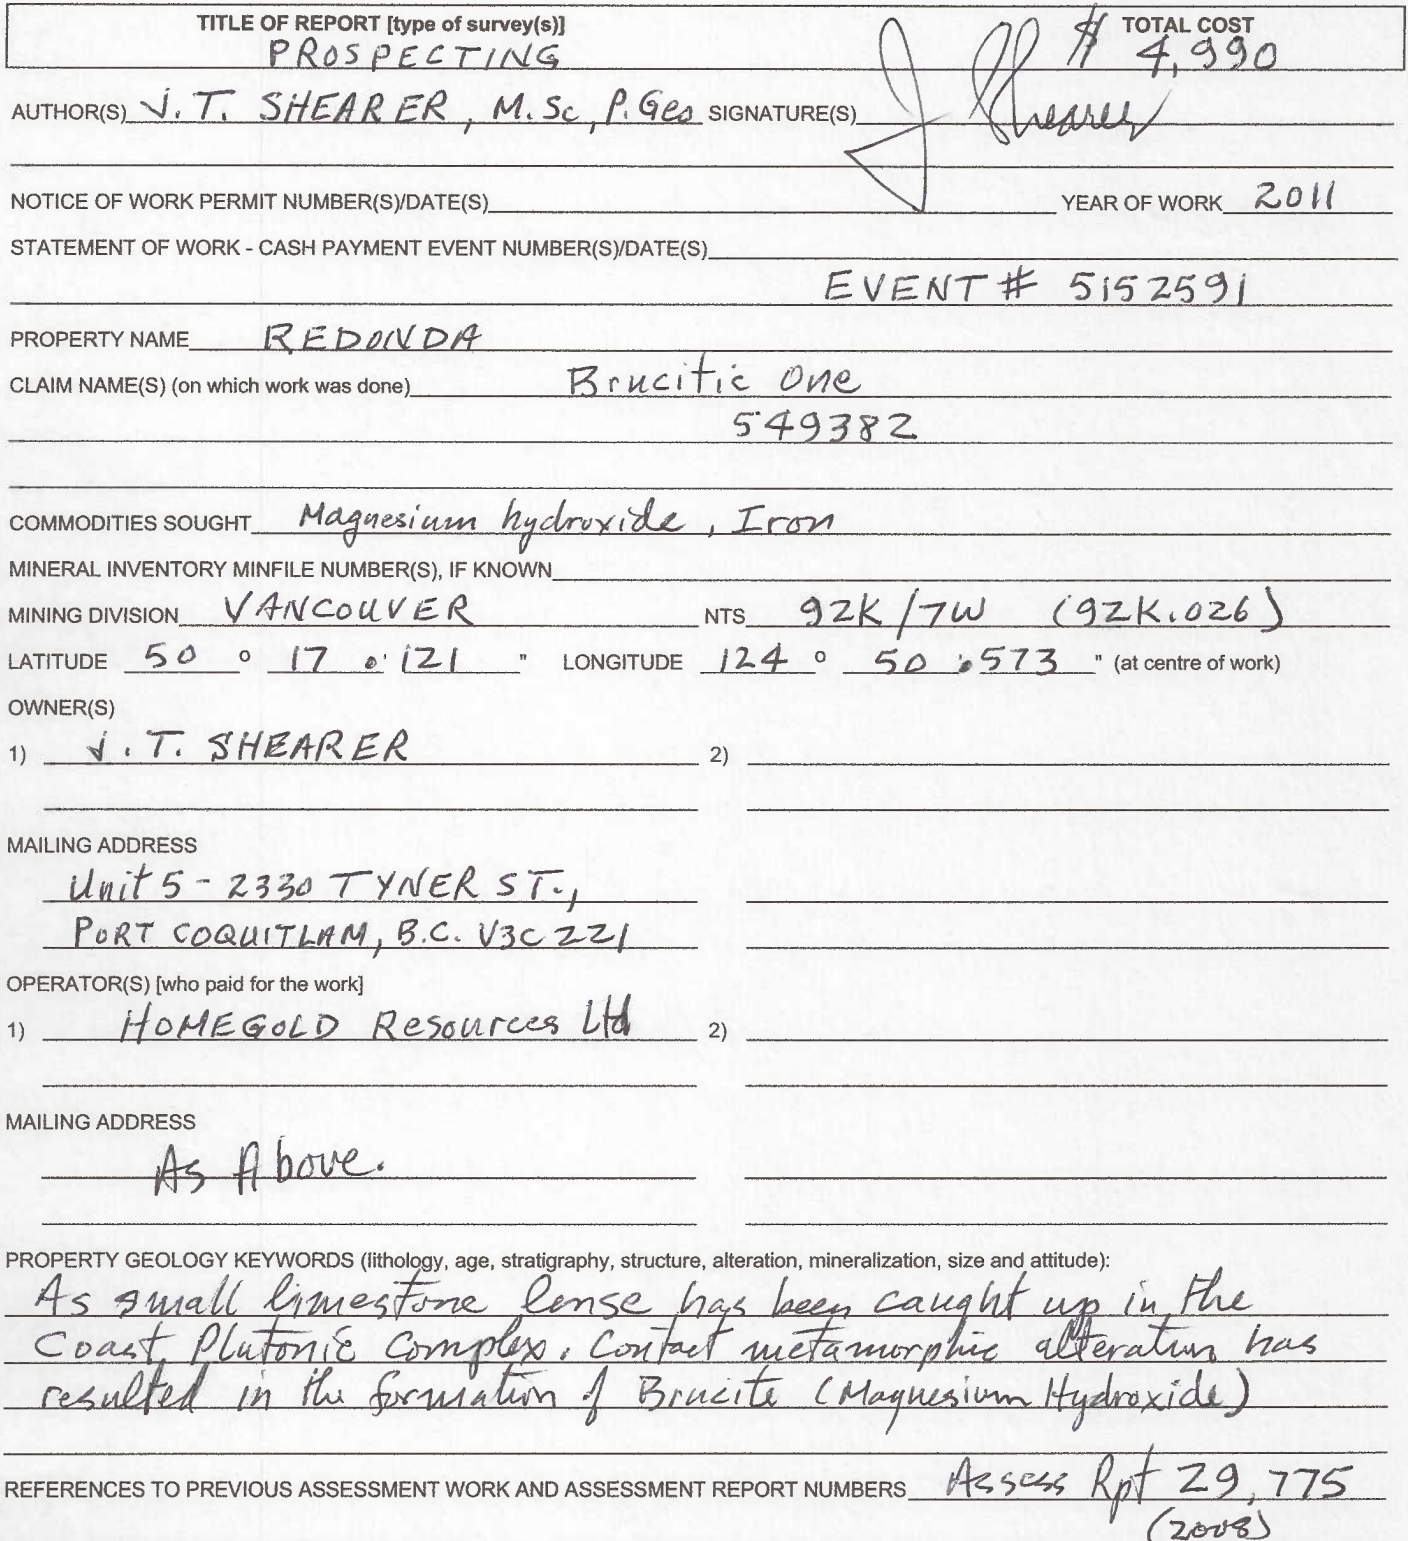 TITLE OF REPORT [type of survey(s)] TOTAL COST
PROSPECTING $ 4,990
AUTHOR(S) J. T. SHEARER, M.Sc, P.Geo SIGNATURE(S) J Shearer
NOTICE OF WORK PERMIT NUMBER(S)/DATE(S) YEAR OF WORK 2011
STATEMENT OF WORK - CASH PAYMENT EVENT NUMBER(S)/DATE(S)
EVENT # 5152591
PROPERTY NAME REDONDA
CLAIM NAME(S) (on which work was done) Brucitic One
549382
COMMODITIES SOUGHT Magnesium hydroxide, Iron
MINERAL INVENTORY MINFILE NUMBER(S), IF KNOWN
MINING DIVISION VANCOUVER NTS 92K/7W (92K.026)
LATITUDE 50 ° 17 .' 121 " LONGITUDE 124 ° 50 .' 573 " (at centre of work)
OWNER(S)
1) J. T. SHEARER 2)
MAILING ADDRESS
Unit 5 - 2330 TYNER ST.,
PORT COQUITLAM, B.C. V3C 2Z1
OPERATOR(S) [who paid for the work]
1) HOMEGOLD Resources Ltd 2)
MAILING ADDRESS
As Above.
PROPERTY GEOLOGY KEYWORDS (lithology, age, stratigraphy, structure, alteration, mineralization, size and attitude):
As small limestone lense has been caught up in the
Coast Plutonic Complex. Contact metamorphic alteration has
resulted in the formation of Brucite (Magnesium Hydroxide)
REFERENCES TO PREVIOUS ASSESSMENT WORK AND ASSESSMENT REPORT NUMBERS Assess Rpt 29,775
(2008)